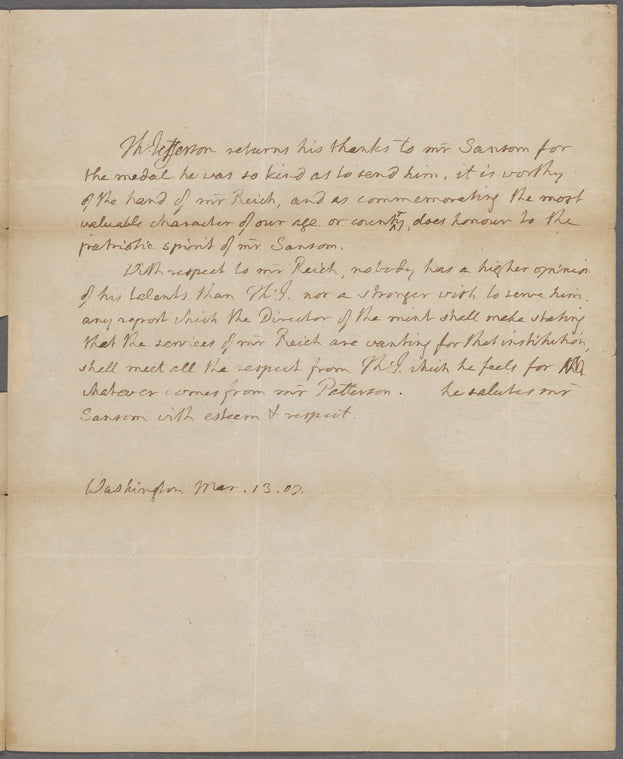 Th: Jefferson returns his thanks to mr Sansom for
the medal he was so kind as to send him. it is worthy
of the hand of mr Reich, and as commemorating the most
valuable character of our age or country, does honour to the
patriotic spirit of mr Sansom.
With respect to mr Reich, nobody has a higher opinion
of his talents than Th: J. nor a stronger wish to serve him.
any report which the Director of the mint shall make stating
that the services of mr Reich are wanting for that institution,
shall meet all the respect from Th: J. which he feels for
whatever comes from mr Patterson. he salutes mr
Sansom with esteem & respect.
Washington Mar. 13. 07.